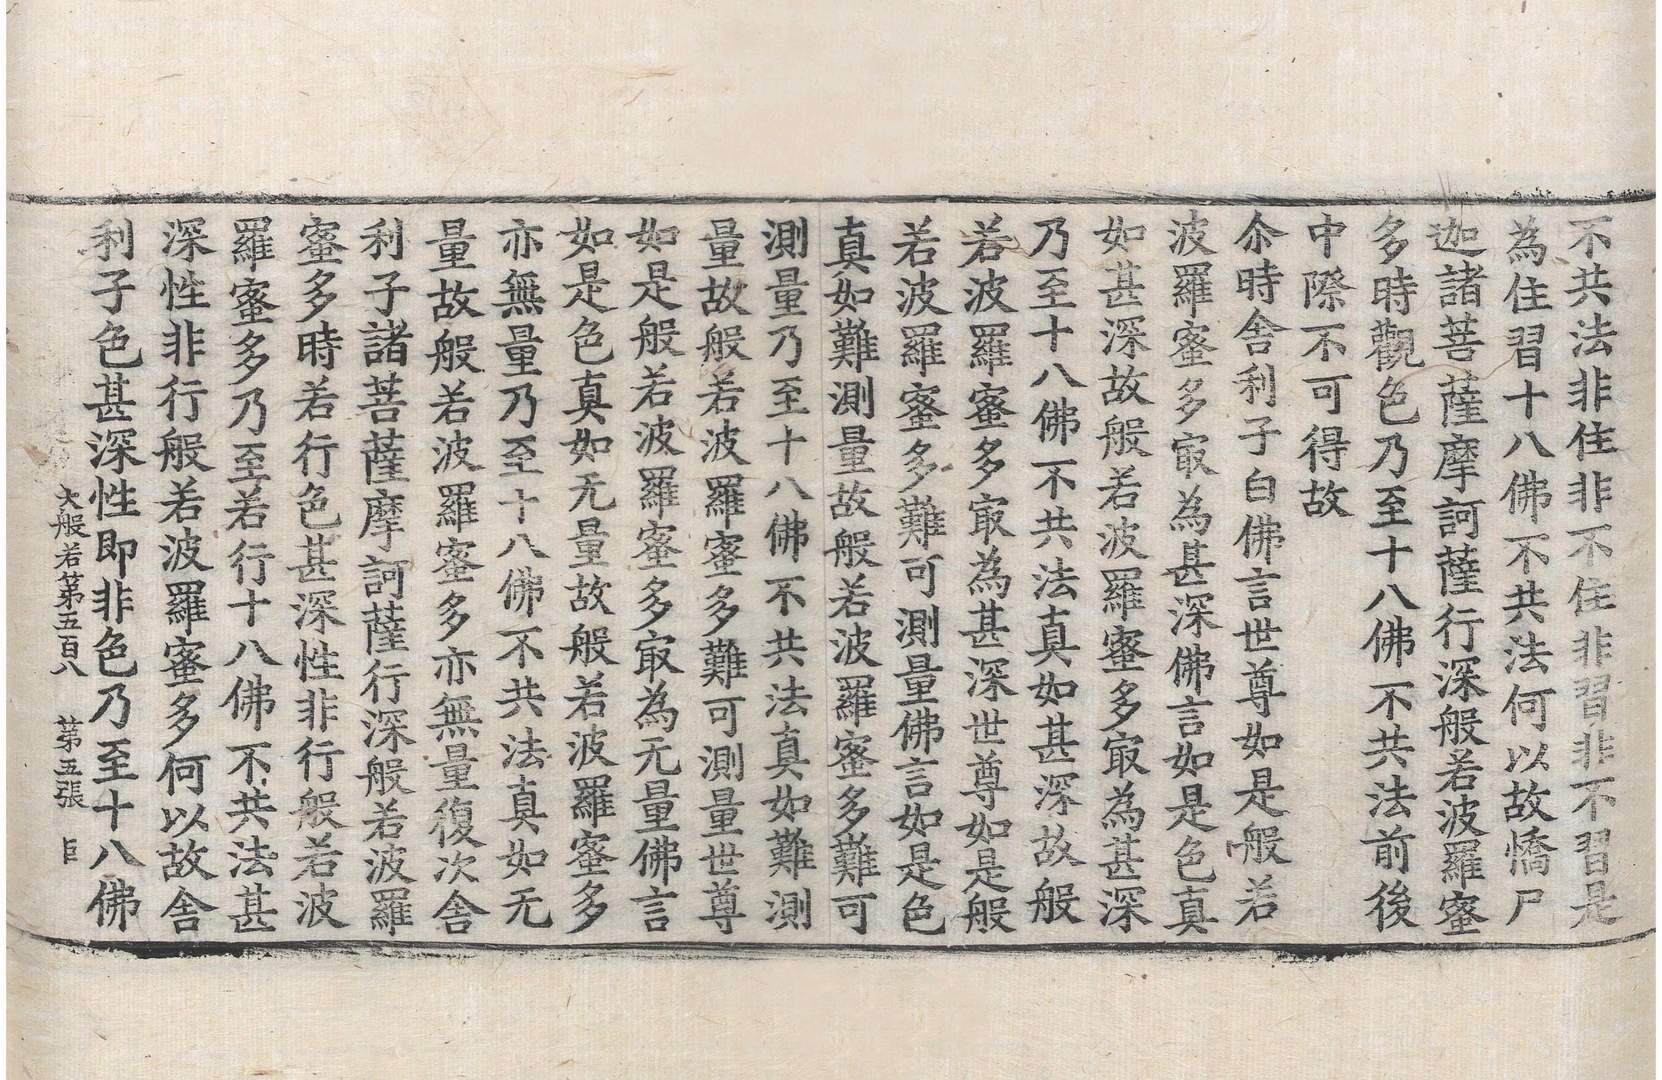 不共法非住非不住非習非不習是
為住習十八佛不共法何以故憍尸
迦諸菩薩摩訶薩行深般若波羅蜜
多時觀色乃至十八佛不共法前後
中際不可得故
尒時舎利子白佛言世尊如是般若
波羅蜜多㝡為甚深佛言如是色真
如甚深故般若波羅蜜多㝡為甚深
乃至十八佛不共法真如甚深故般
若波羅蜜多㝡為甚深世尊如是般
若波羅蜜多難可測量佛言如是色
真如難測量故般若波羅蜜多難可
測量乃至十八佛不共法真如難測
量故般若波羅蜜多難可測量世尊
如是般若波羅蜜多㝡為无量佛言
如是色真如无量故般若波羅蜜多
亦無量乃至十八佛不共法真如无
量故般若波羅蜜多亦無量復次舎
利子諸菩薩摩訶薩行深般若波羅
蜜多時若行色甚深性非行般若波
羅蜜多乃至若行十八佛不共法甚
深性非行般若波羅蜜多何以故舎
利子色甚深性即非色乃至十八佛
大般若第五百八　第五張　巨